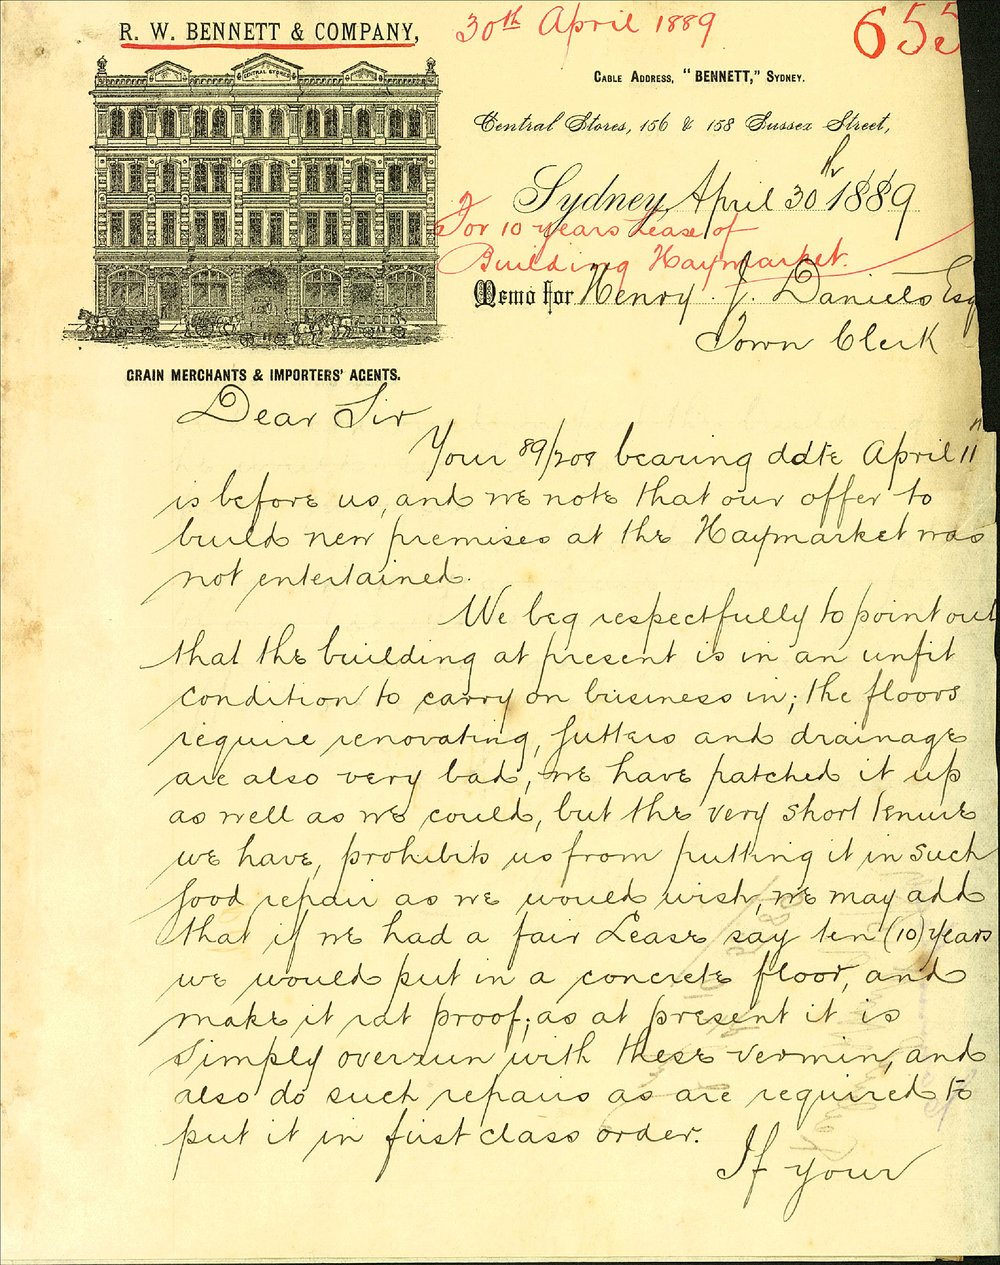 R. W. BENNETT & COMPANY,
30th April 1889
655
CENTRAL STORES
CABLE ADDRESS, "BENNETT," SYDNEY.
Central Stores, 156 & 158 Sussex Street,
Sydney, April 30th 1889
For 10 years Lease of
Building Haymarket.
Memo for Henry J. Daniels Esq
Town Clerk
GRAIN MERCHANTS & IMPORTERS' AGENTS.
Dear Sir
Your 89/208 bearing ddte April 11
is before us, and we note that our offer to
build new premises at the Haymarket was
not entertained.
We beg respectfully to point out
that the building at present is in an unfit
condition to carry on business in; the floors
require renovating, gutters and drainage
are also very bad, we have patched it up
as well as we could, but the very short tenure
we have, prohibits us from putting it in such
good repair as we would wish, we may add
that if we had a fair Lease say ten (10) years
we would put in a concrete floor, and
make it rat proof; as at present it is
simply overrun with these vermin, and
also do such repairs as are required to
put it in first class order.
If your